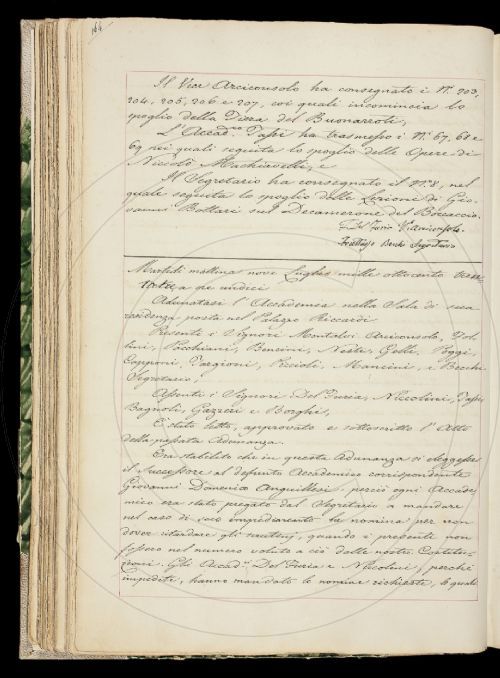 164
Il Vice Arciconsolo ha consegnato i Nⁱ 203,
204, 205, 206 e 207, coi quali incomincia lo
spoglio della Fiera del Buonarroti;
L'Accad.co Tassi ha trasmesso i Nⁱ 67, 68 e
69 pei quali seguita lo spoglio delle Opere di
Niccolò Machiavelli; e
Il Segretario ha consegnato il Nº 8, nel
quale seguita lo spoglio delle Lezioni di Gio-
vanni Bottari sul Decamerone del Boccaccio.
F. Del Furia V. Arciconsolo.
Fruttuoso Becchi Segretario
Martedì mattina nove Luglio mille ottocento tren-
a ore undici
Adunatasi l'Accademia nella Sala di sua
residenza posta nel Palazzo Riccardi
Presenti i Signori Montalvi Arciconsolo,
Pecchioni, Bencini, Nesti, Gelli, Poggi,
Capponi, Targioni, Piccioli, Mancini, e Becchi
Segretario;
Assenti i Signori Del Furia, Niccolini, Tassi,
Bagnoli, Gazzeri e Borghi,
È stato letto, approvato e sottoscritto l'Atto
della passata Adunanza.
Era stabilito che in questa Adunanza si eleggesse
il Successore al defunto Accademico corrispondente
Giovanni Domenico Anguillesi; perciò ogni Accade-
mico era stato pregato dal Segretario a mandare
nel caso di suo impedimento la nomina per non
dover ritardare gli squittinj, quando i presenti non
fossero nel numero voluto a ciò dalle nostre Costitu-
zioni. Gli Accad.ci Del Furia e Niccolini, perché
impediti, hanno mandato le nomine richieste, le quali